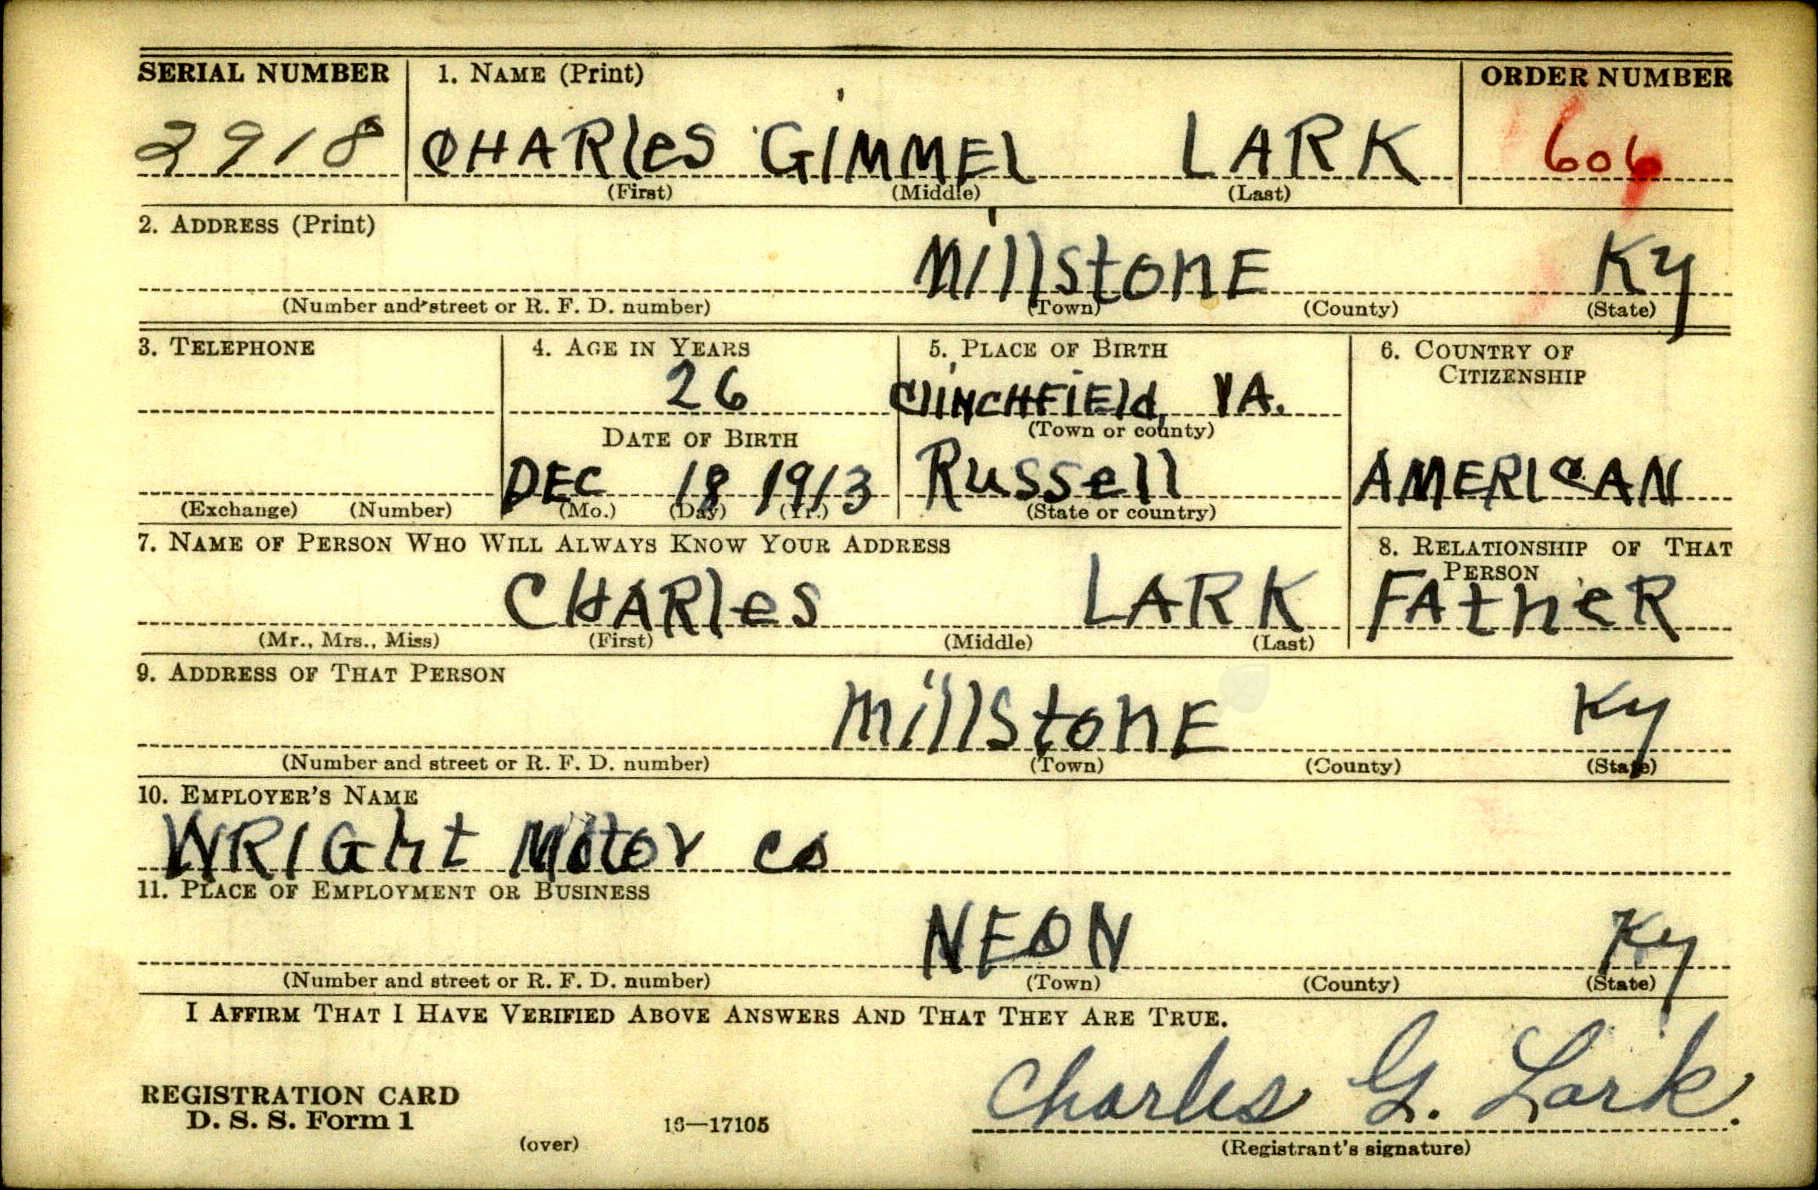 SERIAL NUMBER 1. NAME (Print) ORDER NUMBER
2918 CHARles GIMMEl LARK 606
(First) (Middle) (Last)
2. ADDRESS (Print)
MillstonE Ky
(Number and street or R. F. D. number) (Town) (County) (State)
3. TELEPHONE 4. AGE IN YEARS 5. PLACE OF BIRTH 6. COUNTRY OF
CITIZENSHIP
26 ClINCHFIEld, VA.
DATE OF BIRTH (Town or county)
DEC 18 1913 Russell AMERICAN
(Exchange) (Number) (Mo.) (Day) (Yr.) (State or country)
7. NAME OF PERSON WHO WILL ALWAYS KNOW YOUR ADDRESS 8. RELATIONSHIP OF THAT
PERSON
CHARles LARK FAtheR
(Mr., Mrs., Miss) (First) (Middle) (Last)
9. ADDRESS OF THAT PERSON
MillStonE Ky
(Number and street or R. F. D. number) (Town) (County) (State)
10. EMPLOYER'S NAME
WRIGht Motor Co
11. PLACE OF EMPLOYMENT OR BUSINESS
NEON Ky
(Number and street or R. F. D. number) (Town) (County) (State)
I AFFIRM THAT I HAVE VERIFIED ABOVE ANSWERS AND THAT THEY ARE TRUE.
Charles G. Lark.
REGISTRATION CARD
D. S. S. Form 1 16—17105
(over) (Registrant's signature)